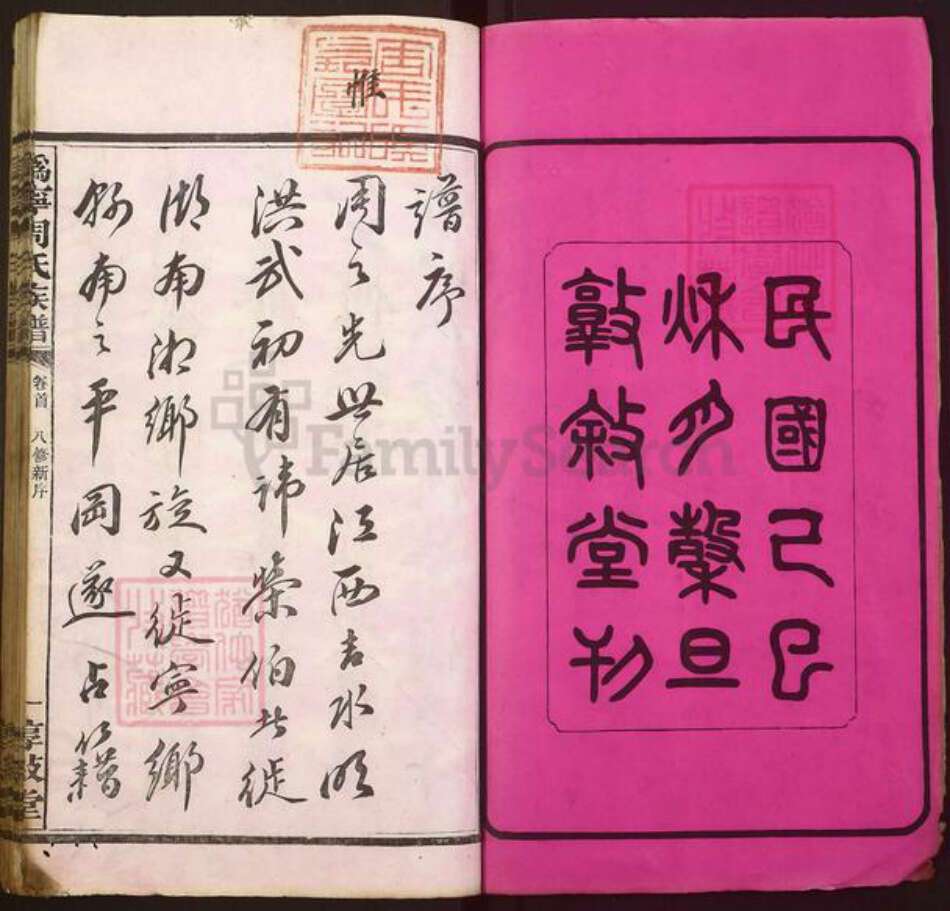 民國己巳
秌月穀旦
敦敘堂刊
譜序
惟
周之先世居江西吉水明
洪武初有諱榮伯者徙
湖南湘鄉旋又徙寧鄉
縣南之平岡遂占籍
溈寧周氏族譜
卷首 八修新序
一 惇敘堂
FamilySearch